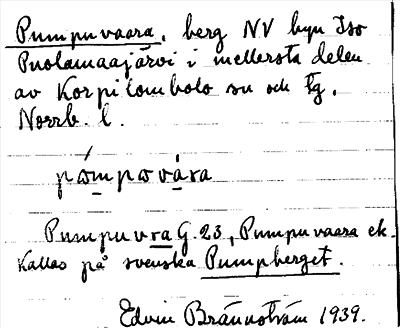 Pumpuvaara, berg NV byn Iso
Puolamaajärvi i mellersta delen
av Korpilombolo sn och tg.
Norrb. l.
pɷmpɷvára
Pumpuvra G. 23, Pumpuvaara ek.
Kallas på svenska Pumpberget.
Edvin Brännström 1939.